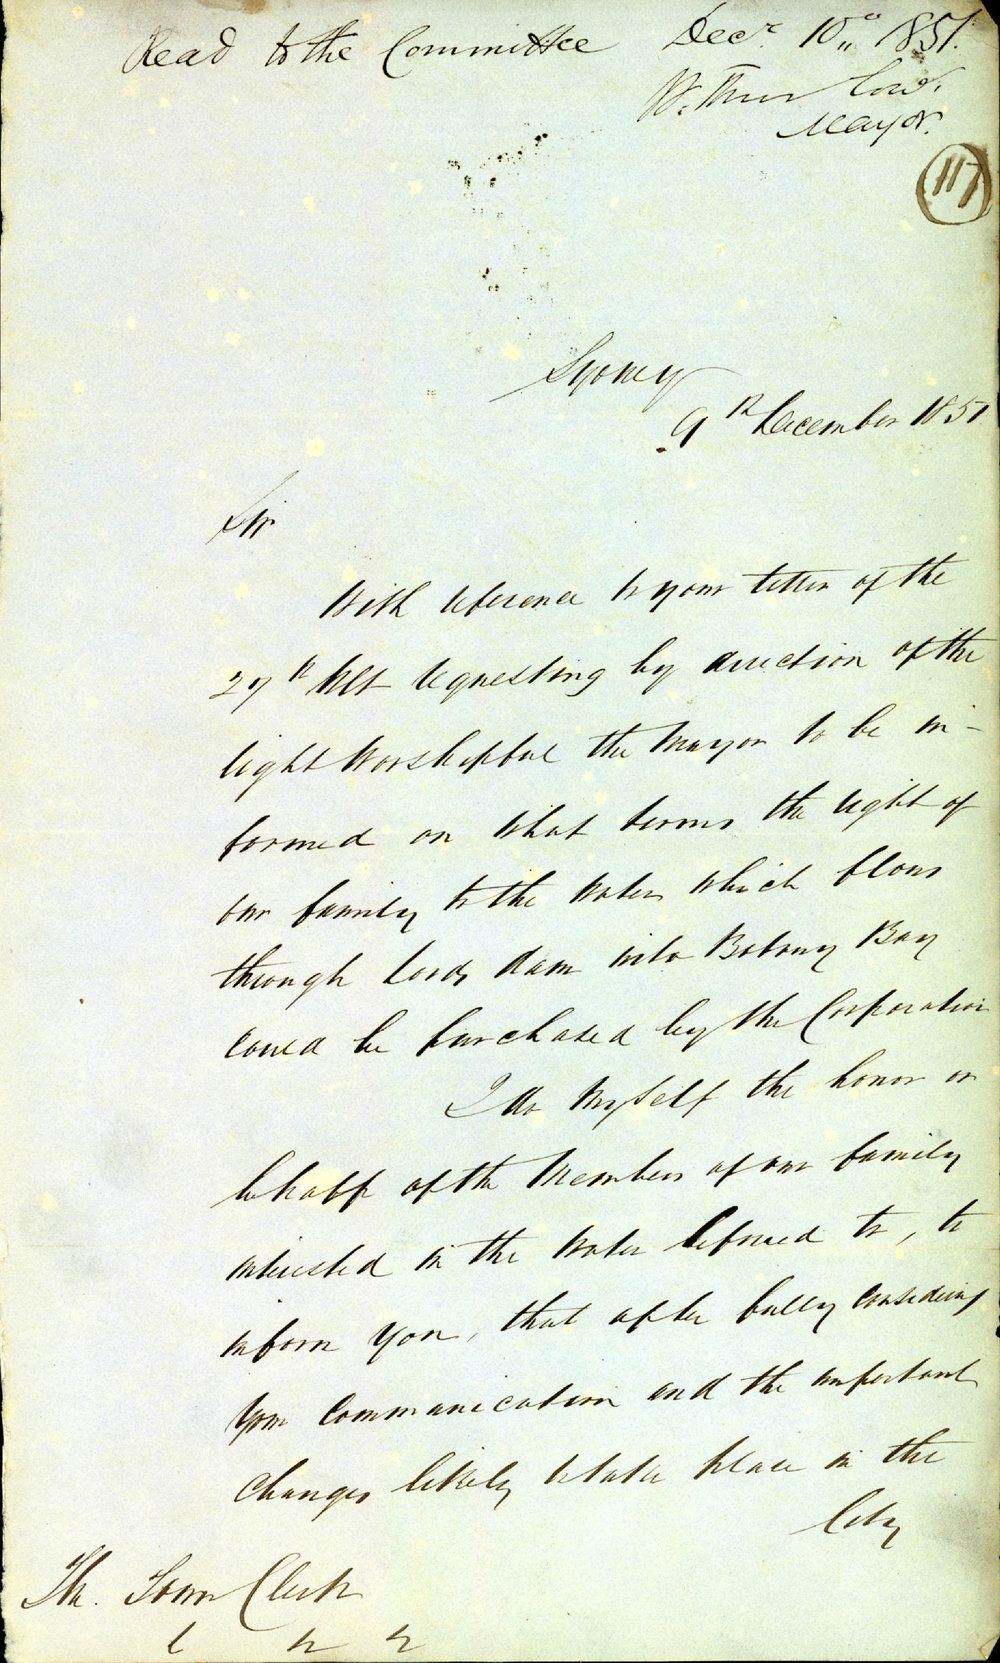 Read to the Committee Decr. 10th 1851.
W. Thurlow.
Mayor.
117
Sydney
9th December 1851
Sir
With reference to your letter of the
27th Ult requesting by direction of the
right Worshipful the Mayor to be in-
formed on what terms the right of
our family to the Water which flows
through Lords dam into Botany Bay
could be purchased by the Corporation
I do myself the honor on
behalf of the Members of our family
interested in the Water referred to, to
inform you, that after fully considering
your communication and the important
changes likely to take place in the
City
The Town Clerk